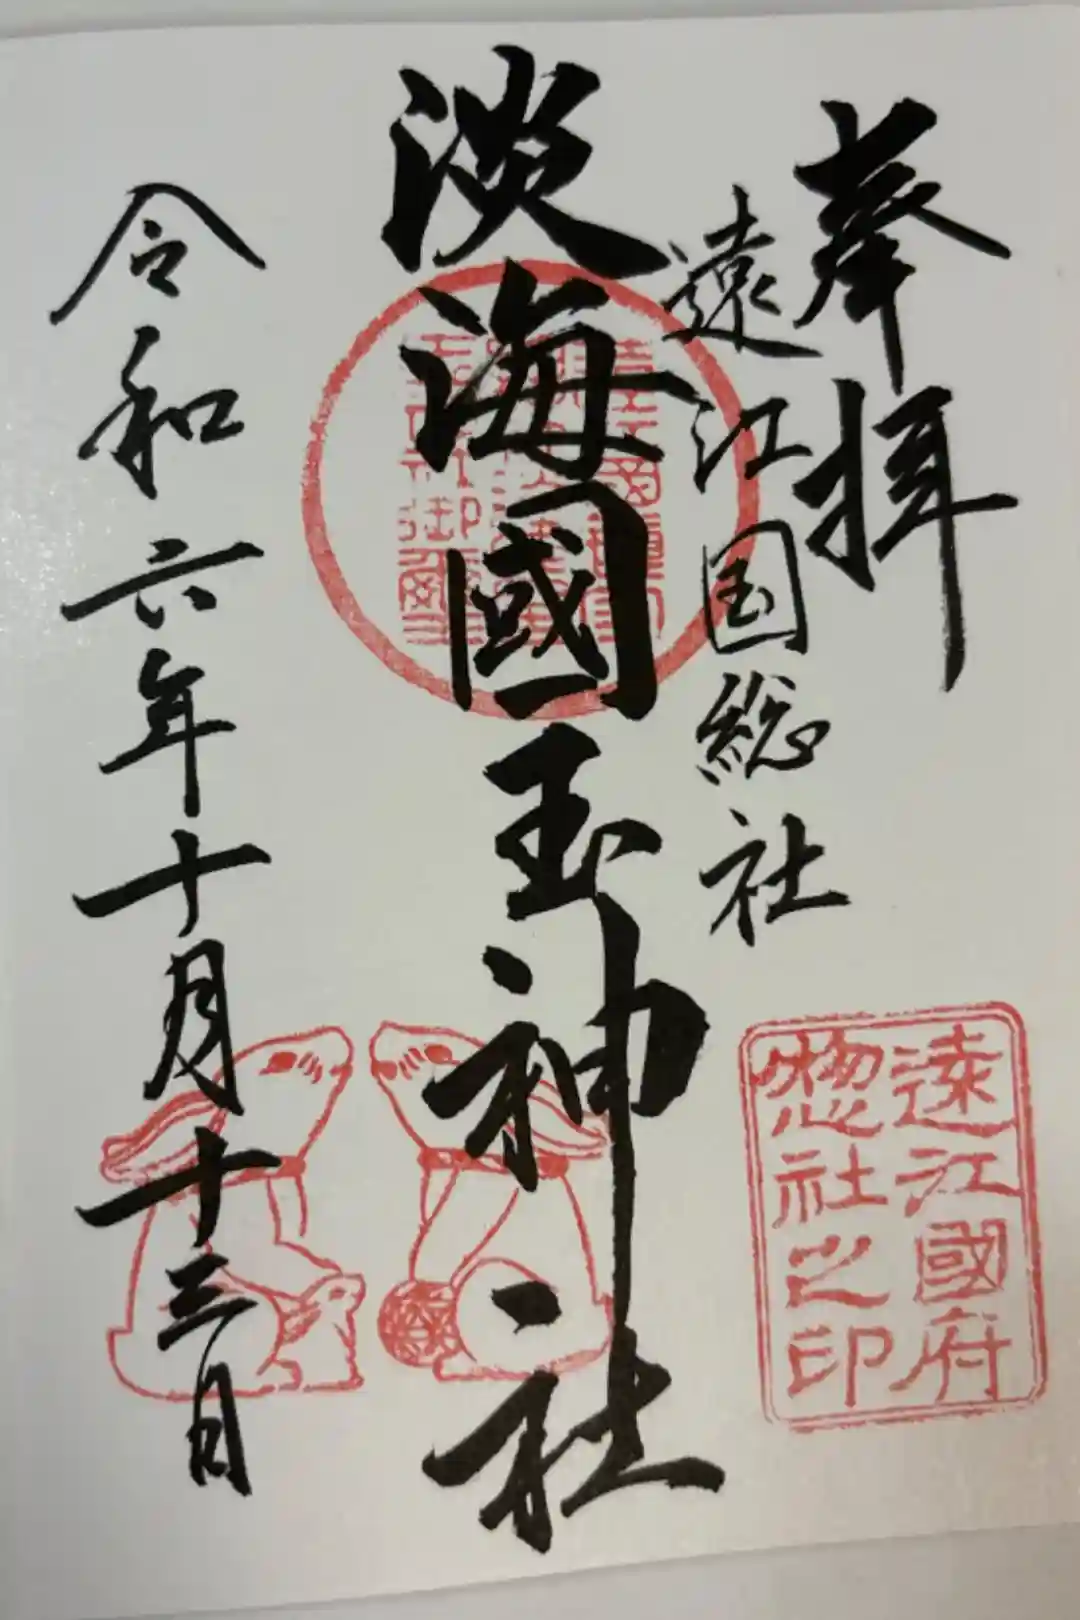 奉拝
遠江国総社
淡海國玉神社
令和六年十月十三日
遠江國府
惣社之印